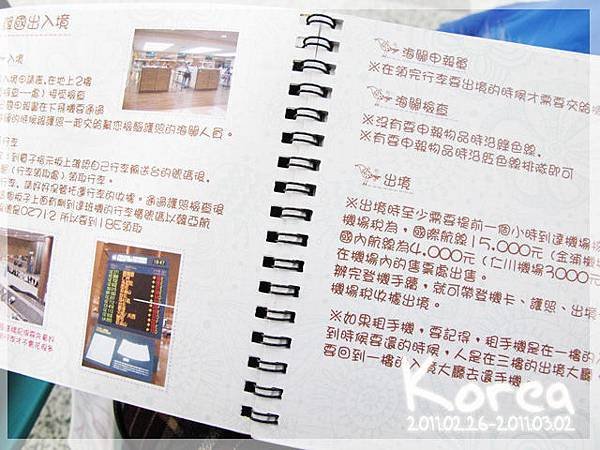 韓國出入境
入境
入境申請書,在地上2樓
檢查一處)接受檢查
申報書在下飛機要通過
的時候跟護照一起交給幫您檢驗護照的海關人員。
行李
:到電子指示板上確認自己行李輸送台的號碼後,
(行李領取處)領取行李。
行李,請好好保管托運行李的收據。通過護照檢查後
個板子上面有剛到達班機的行李櫃號碼以韓亞航
號是OZ712 所以要到18E領取
海關申報單
※在領完行李要出境的時候才需要交給
海關檢查
※沒有要申報物品時沿綠色線,
※有要申報物品時沿紅色線排隊即可
出境
※出境時至少需要提前一個小時到達機場
機場稅為,國際航線15.000元(金浦機
國內航線為4.000元(仁川機場3000元
在機場內的售票處出售。
辦完登機手續,就可帶登機卡、護照、出境
機場稅收據出境。
※如果租手機,要記得,租手機是在一樓的入
到時候要還的時候,人是在三樓的出境大廳,
要回到一樓的入境大廳去還手機
Korea
2011.02.26-2011.03.02